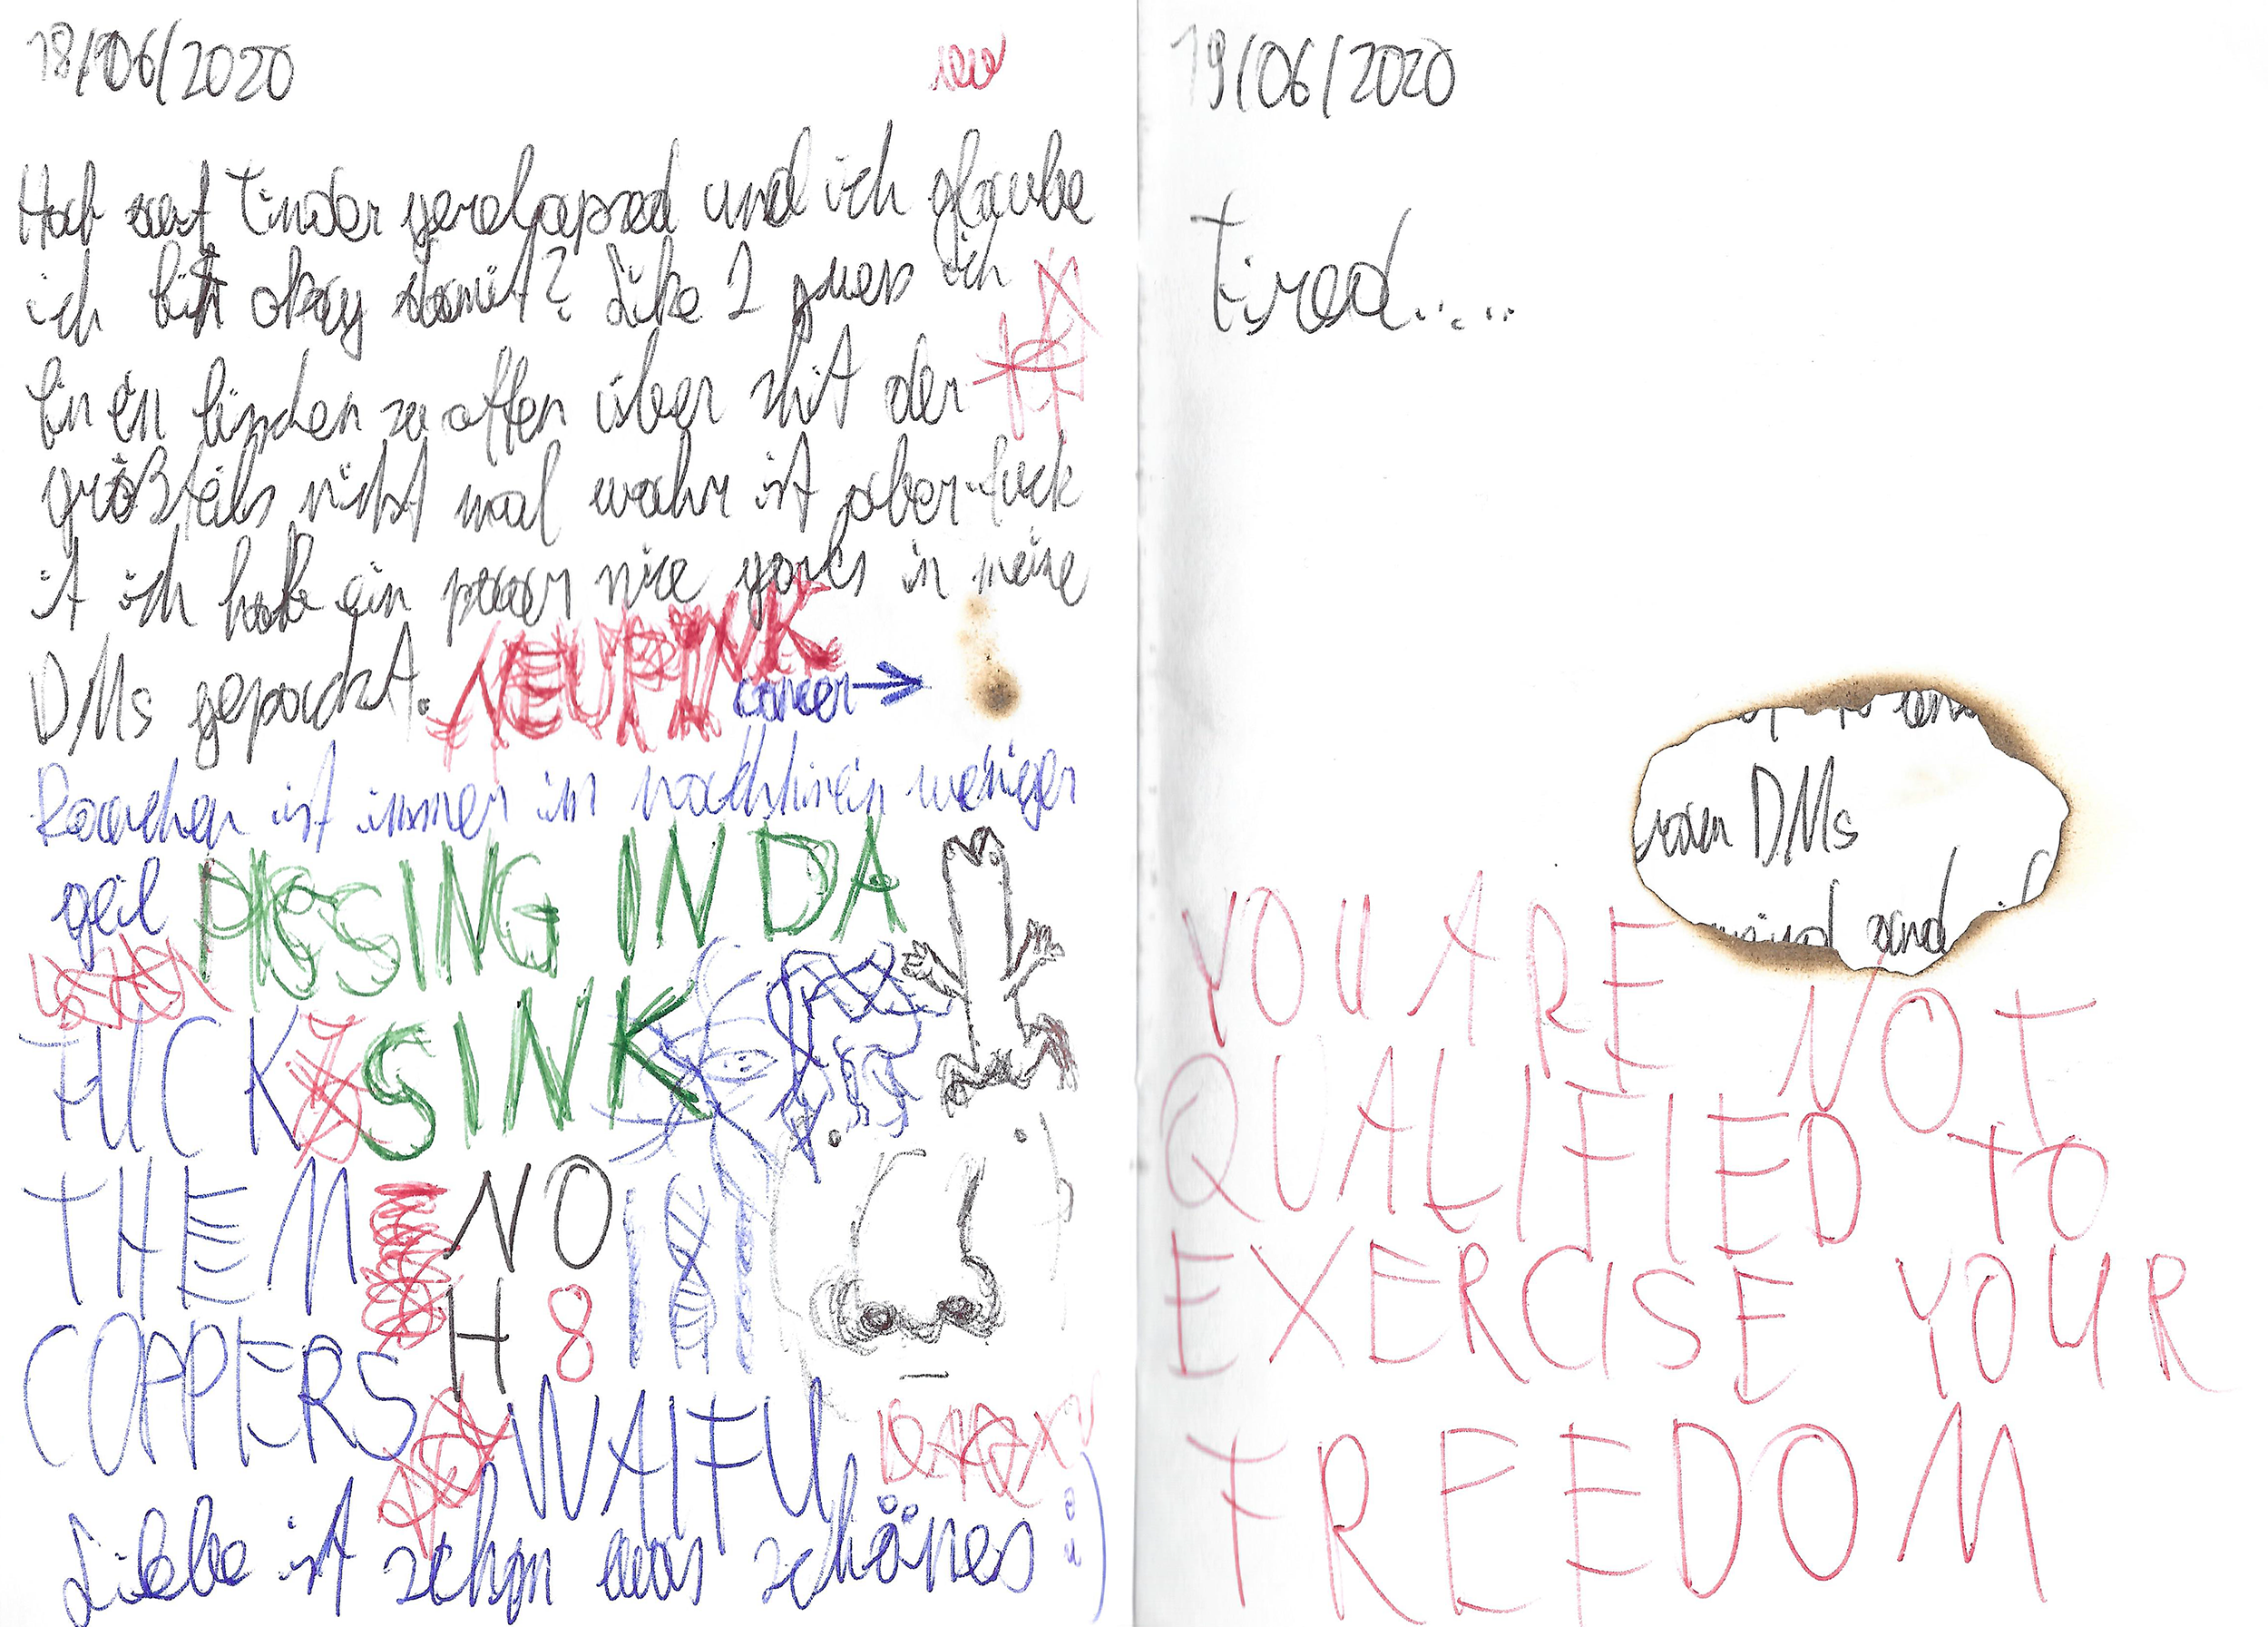 18/06/2020
Hab auf Tinder gerelapsed und ich glaube
ich bin okay damit? Like I guess ich
bin ein binden zu offen über shit der
größteils nicht mal wahr ist aber fuck
it ich habe ein paar nice yarls in meine
DMs gepackt.
NEUPINK
cancer →
Rauchen ist immer im nachhinein weniger
geil
PISSING IN DA
SINK
FUCK
THEM
COPPERS
NO
H8
WAIFU
Liebe ist schon was schönes :)
19/06/2020
tired.....
DMs
and
YOU ARE NOT
QUALIFIED TO
EXERCISE YOUR
FREEDOM